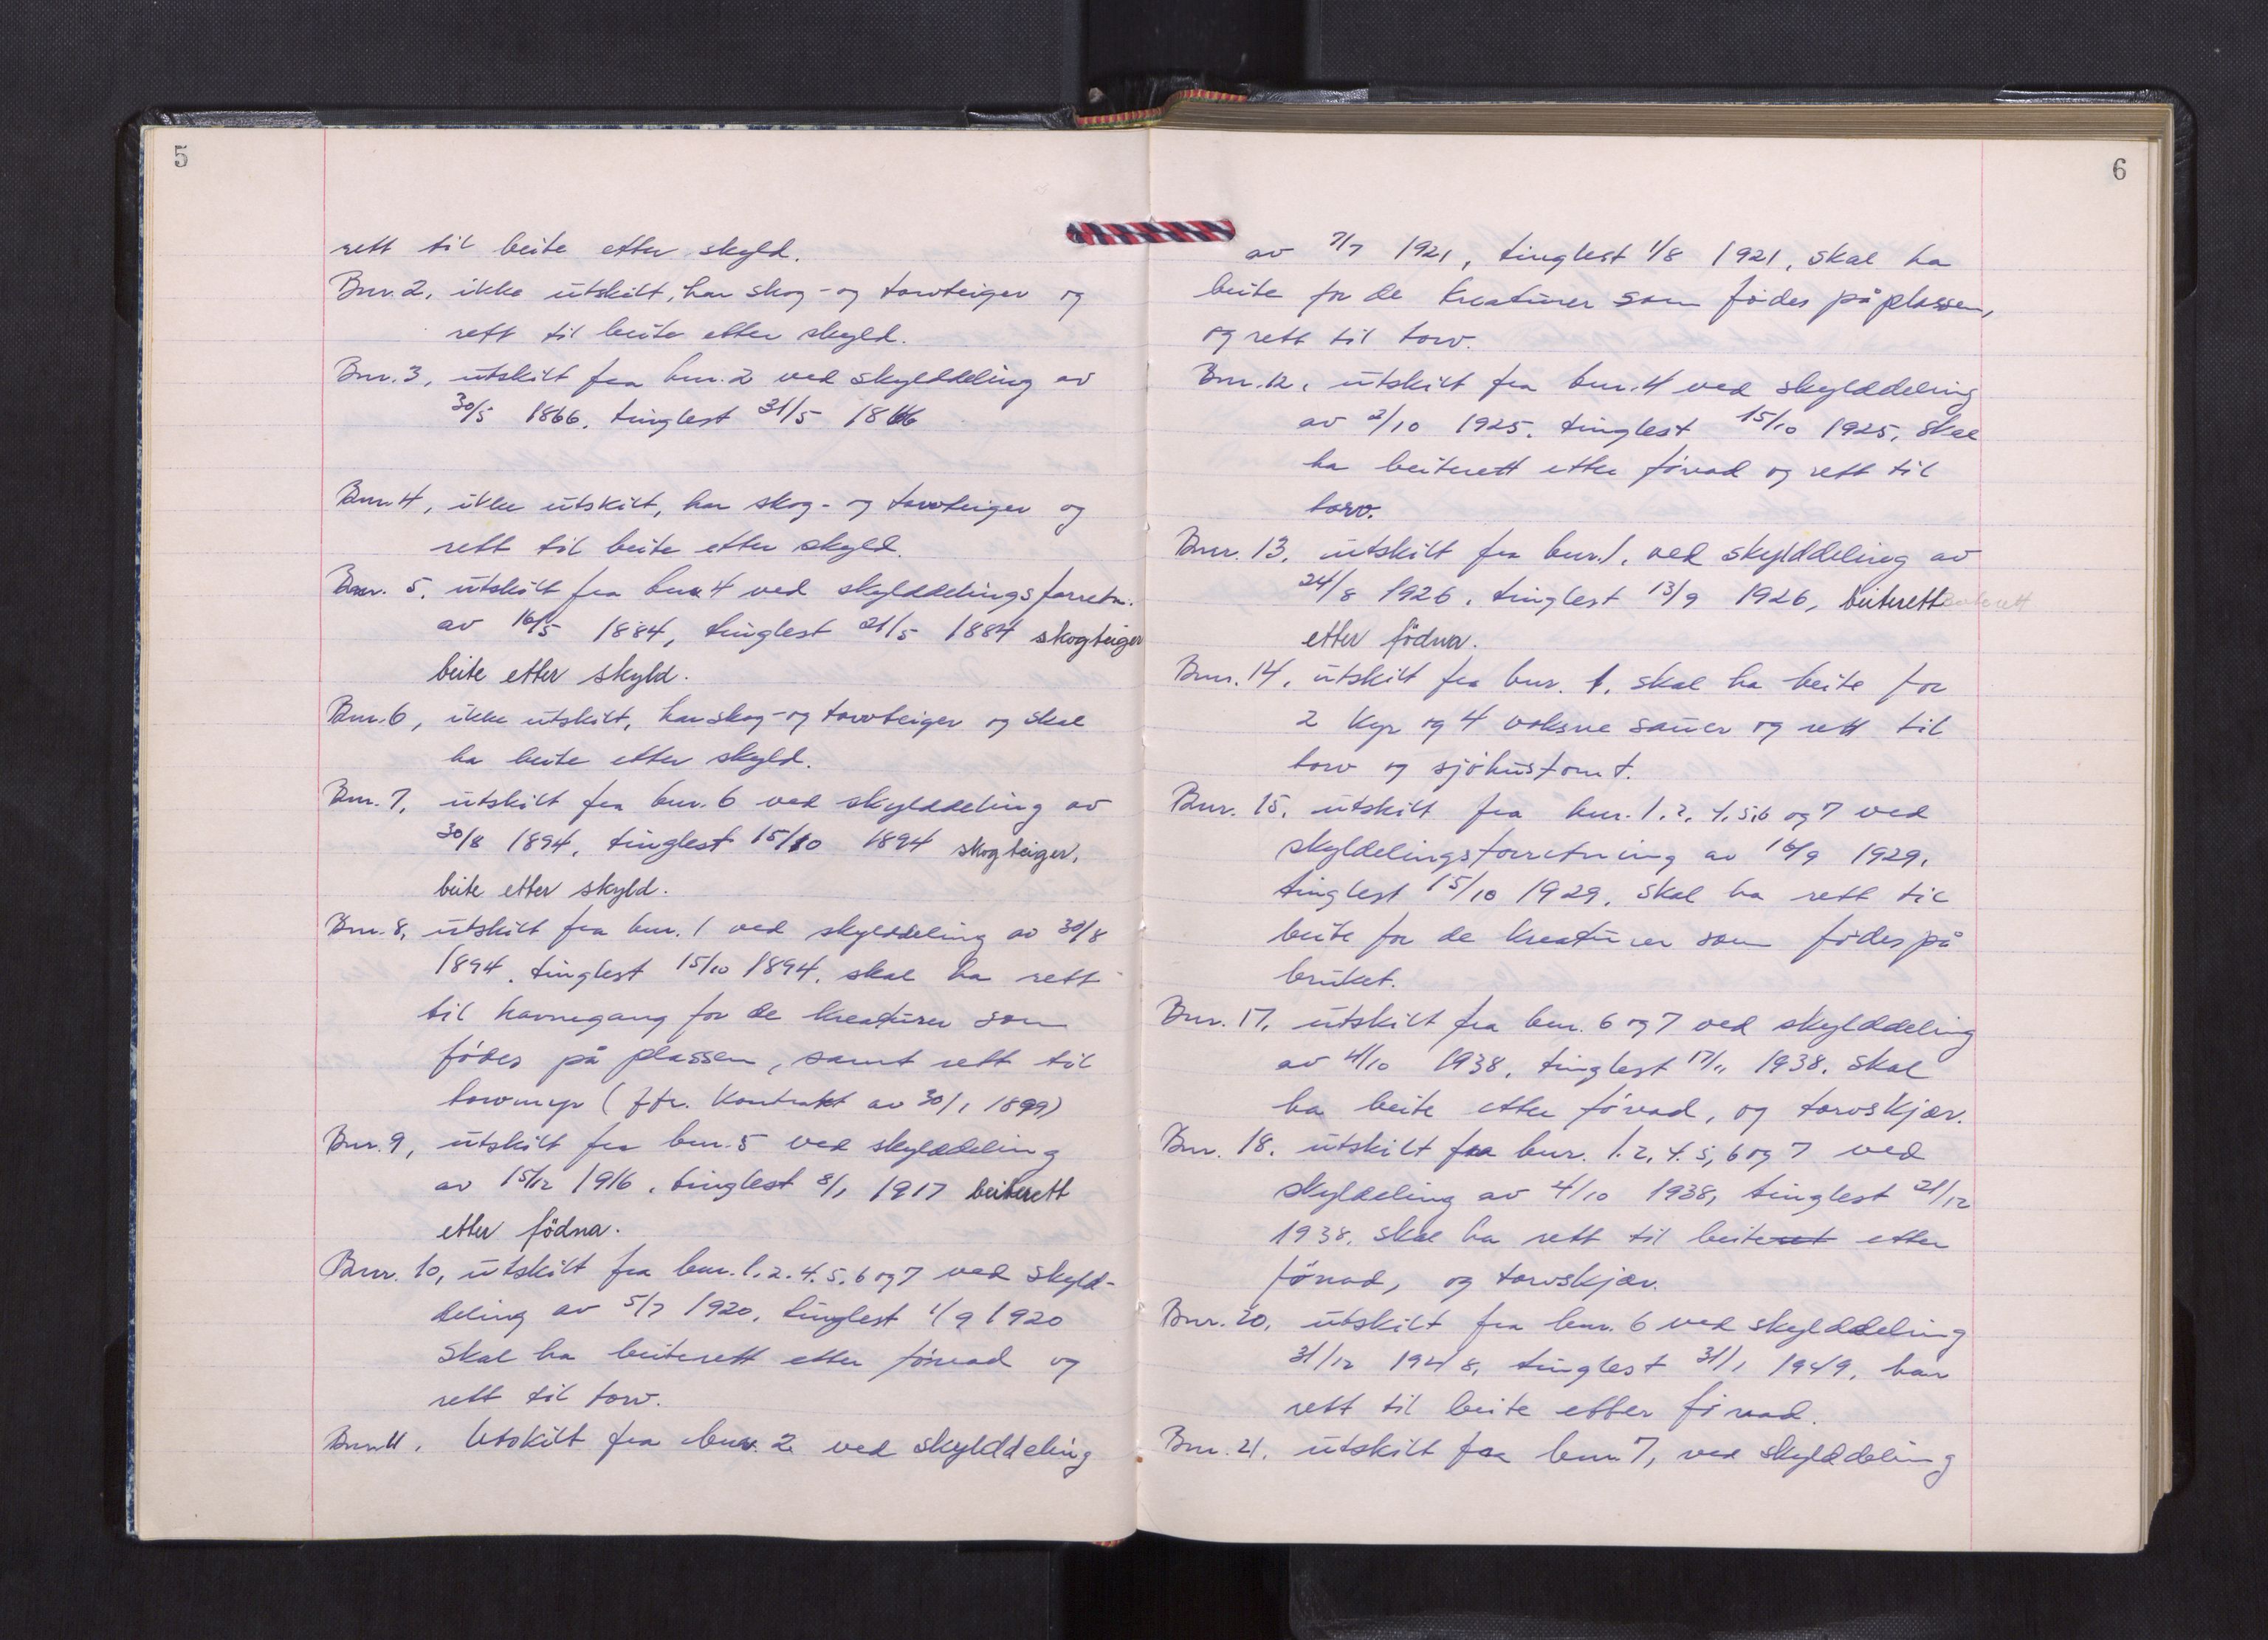 5
rett til beite etter skyld.
Bnr. 2, ikke utskilt, har skog- og torvteiger og
rett til beite etter skyld.
Bnr. 3, utskilt fra bnr. 2 ved skylddeling av
30/5 1866. tinglest 31/5 1866
Bnr. 4, ikke utskilt, har skog- og torvteiger og
rett til beite etter skyld.
Bnr. 5. utskilt fra bnr 4 ved skylddelingsforretn.
av 16/5 1884, tinglest 21/5 1884 skogteiger
beite etter skyld.
Bnr. 6, ikke utskilt, har skog- og torvteiger og skal
ha beite etter skyld.
Bnr. 7, utskilt fra bnr. 6 ved skylddeling av
30/8 1894, tinglest 15/10 1894 skogteiger,
beite etter skyld.
Bnr. 8, utskilt fra bnr. 1 ved skylddeling av 30/8
1894. tinglest 15/10 1894. skal ha rett
til havnegang for de kreaturer som
födes på plassen, samt rett til
torvmyr (jfr. Kontrakt av 30/1 1899)
Bnr. 9, utskilt fra bnr. 5 ved skylddeling
av 15/12 1916. tinglest 8/1 1917 beiterett
etter födna.
Bnr. 10, utskilt fra bnr. 1. 2. 4. 5. 6 og 7 ved skyld-
deling av 5/7 1920. tinglest 1/9 1920
skal ha beiterett etter fönad og
rett til torv.
Bnr. 11. Utskilt fra bnr. 2 ved skylddeling
6
av 7/7 1921, tinglest 1/8 1921, skal ha
beite for de kreaturer som födes på plassen,
og rett til torv.
Bnr. 12, utskilt fra bnr. 4 ved skylddeling
av 2/10 1925. tinglest 15/10 1925, skal
ha beiterett etter fönad og rett til
torv.
Bnr. 13, utskilt fra bnr. 1. ved skylddeling av
24/8 1926. tinglest 13/9 1926, beiterett Beiterett
etter födna.
Bnr. 14, utskilt fra bnr. 1, skal ha beite for
2 kyr og 4 voksne sauer og rett til
torv og sjöhustomt.
Bnr. 15, utskilt fra bnr. 1. 2. 4. 5, 6 og 7 ved
skyldelingsforretning av 16/9 1929,
tinglest 15/10 1929, skal ha rett til
beite for de kreaturer som födes på
bruket.
Bnr. 17, utskilt fra bnr. 6 og 7 ved skylddeling
av 4/10 1938, tinglest 17/11 1938. skal
ha beite etter fönad, og torvskjær.
Bnr. 18. utskilt fra bnr. 1. 2. 4. 5, 6 og 7 ved
skyldeling av 4/10 1938, tinglest 21/12
1938. skal ha rett til beiterett etter
fönad, og torvskjær.
Bnr. 20, utskilt fra bnr. 6 ved skylddeling
31/12 1948, tinglest 31/1 1949, har
rett til beite etter fönad.
Bnr. 21. utskilt fra bnr. 7, ved skylddeling